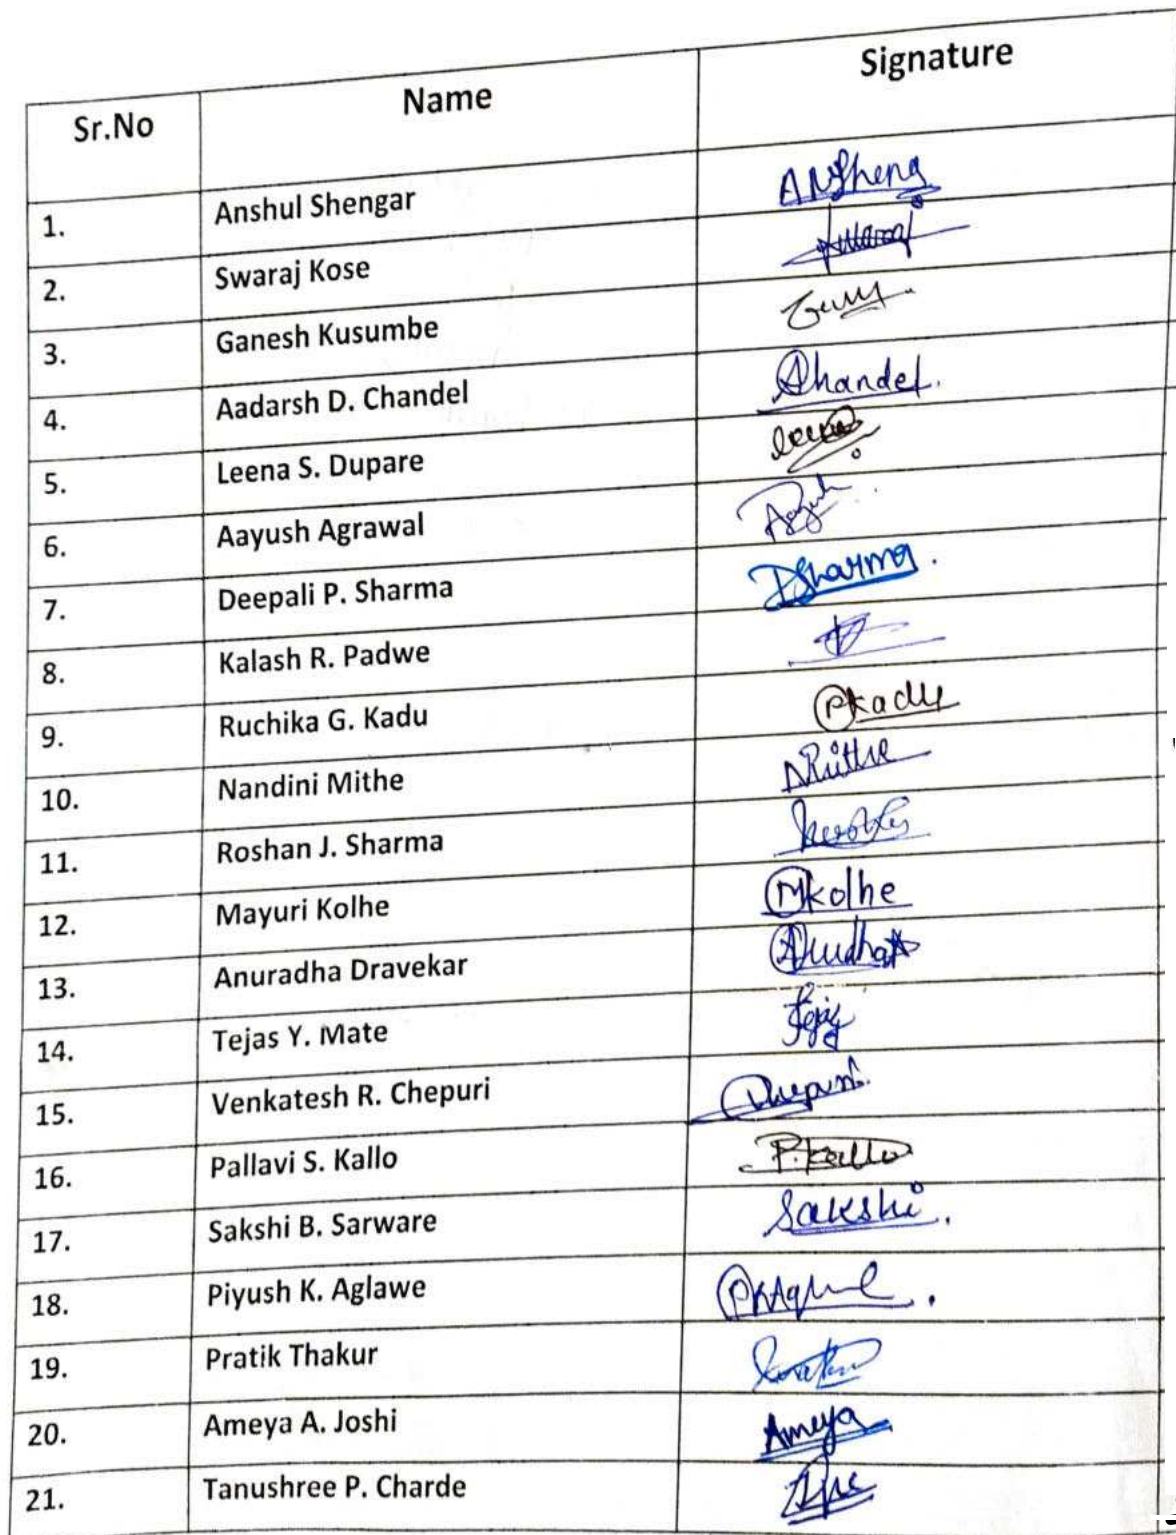 Sr.No Name Signature
1. Anshul Shengar ANSheng
2. Swaraj Kose Swaraj
3. Ganesh Kusumbe
4. Aadarsh D. Chandel Chandel.
5. Leena S. Dupare
6. Aayush Agrawal
7. Deepali P. Sharma DSharma.
8. Kalash R. Padwe
9. Ruchika G. Kadu Rkadu
10. Nandini Mithe
11. Roshan J. Sharma
12. Mayuri Kolhe Mkolhe
13. Anuradha Dravekar
14. Tejas Y. Mate Tejas
15. Venkatesh R. Chepuri
16. Pallavi S. Kallo P.kallo
17. Sakshi B. Sarware Sakshi.
18. Piyush K. Aglawe
19. Pratik Thakur
20. Ameya A. Joshi Ameya
21. Tanushree P. Charde